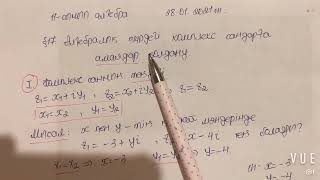 11-сынып алгебра 18.01.2021ж.
§17 Алгебралық түрдегі комплекс сандарға
амалдар қолдану
I Комплекс санның
z₁=x₁+iy₁, z₂=x₂+iy₂, z₁=z₂
x₁=x₂, y₁=y₂
Мысал: x пен y-тің қандай мәндерінде
z₁=-3+yi, z₂=x-4i тең болады?
z₁=z₂ ⇒ x=-3 y₁=y₂ ⇒ y=-4
x=-3
y=-4
VUE